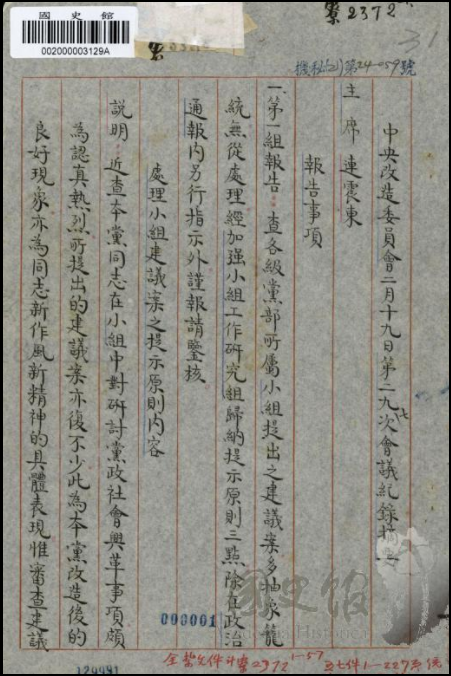 國史館
002000003129A
案2372
31
機秘(21)第24-059號
中央改造委員會二月十九日第二九七次會議紀錄
主席 連震東
報告事項
一、第一組報告：查各級黨部所屬小組提出之建議案多抽象籠
統無從處理經加強小組工作研究組歸納提示原則三點除在政治
通報內另行指示外謹報請鑒核
處理小組建議案之提示原則內容
說明：近查本黨同志在小組中對研討黨政社會興革事項頗
為認真熱烈所提出的建議案亦復不少此為本黨改造後的
良好現象亦為同志新作風新精神的具體表現惟審查建議
000001
國史館
Academia Historica
全案文件計案2372
1-57
1-227
120981